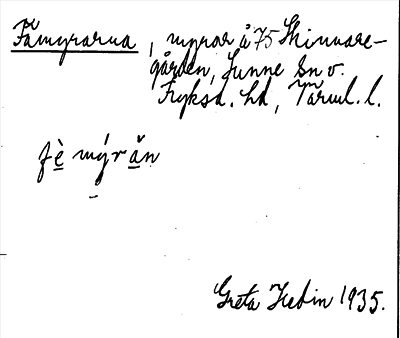 Fämyrarna, myrar å 75 Skinnare-
gården, Sunne sn v.
Fryksd. hd, Värml. l.
fè mýrăn
Greta Hedin 1935.